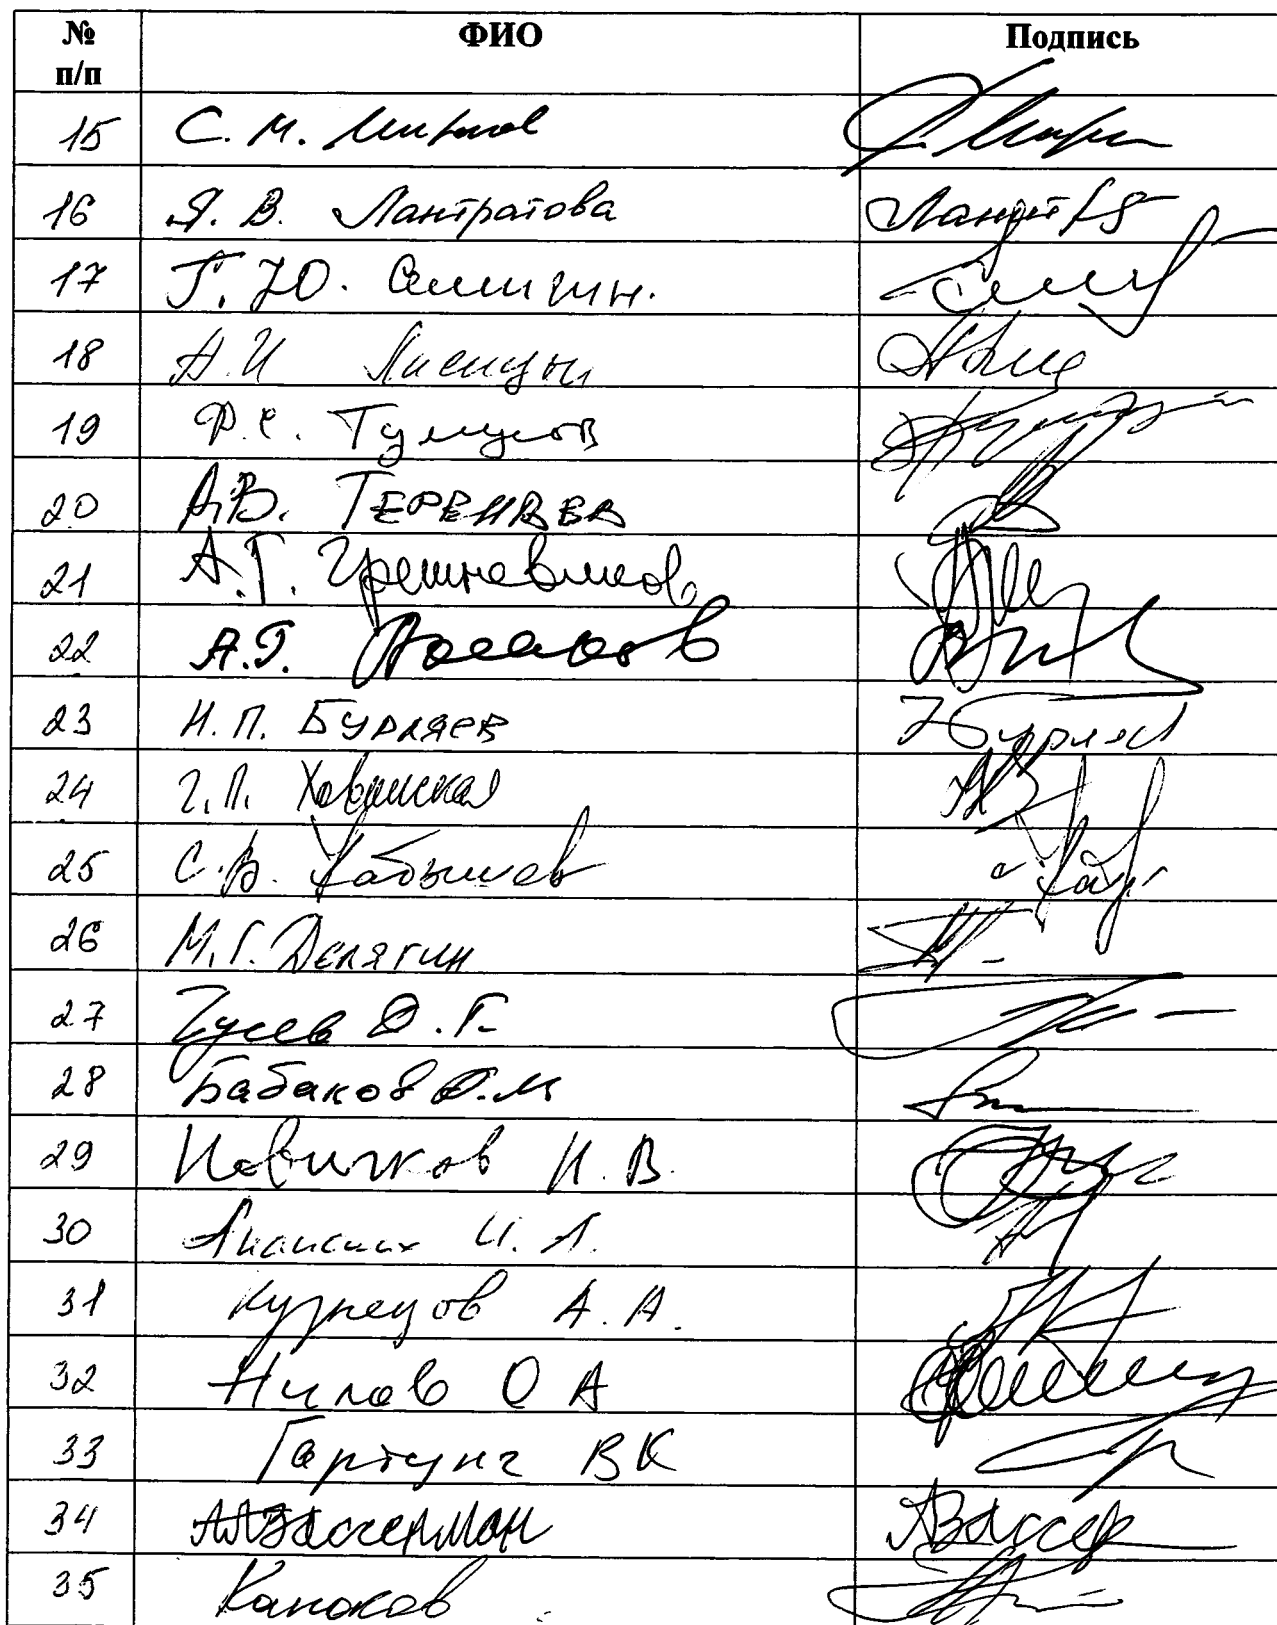 № п/п ФИО Подпись
15 С. М. Миронов
16 Я. В. Лантратова Лант
17 Г. Ю. Семигин.
18 А. И Лисицын
19 Ф. С. Тумусов
20 А.В. ТЕРЕНТЬЕВ
21 А.Г. Грешневиков
22 А.Г. Аксаков
23 Н. П. БУРЛЯЕВ
24 Г. П. Хованская
25 С. В. Кабышев
26 М. Г. Делягин
27 Гусев Д. Г.
28 Бабаков О.М
29 Новичков Н. В.
30 Ананских И. А.
31 Кузнецов А. А.
32 Нилов О А
33 Гартунг ВК
34 АА Вассерман АВассер
35 Каноков